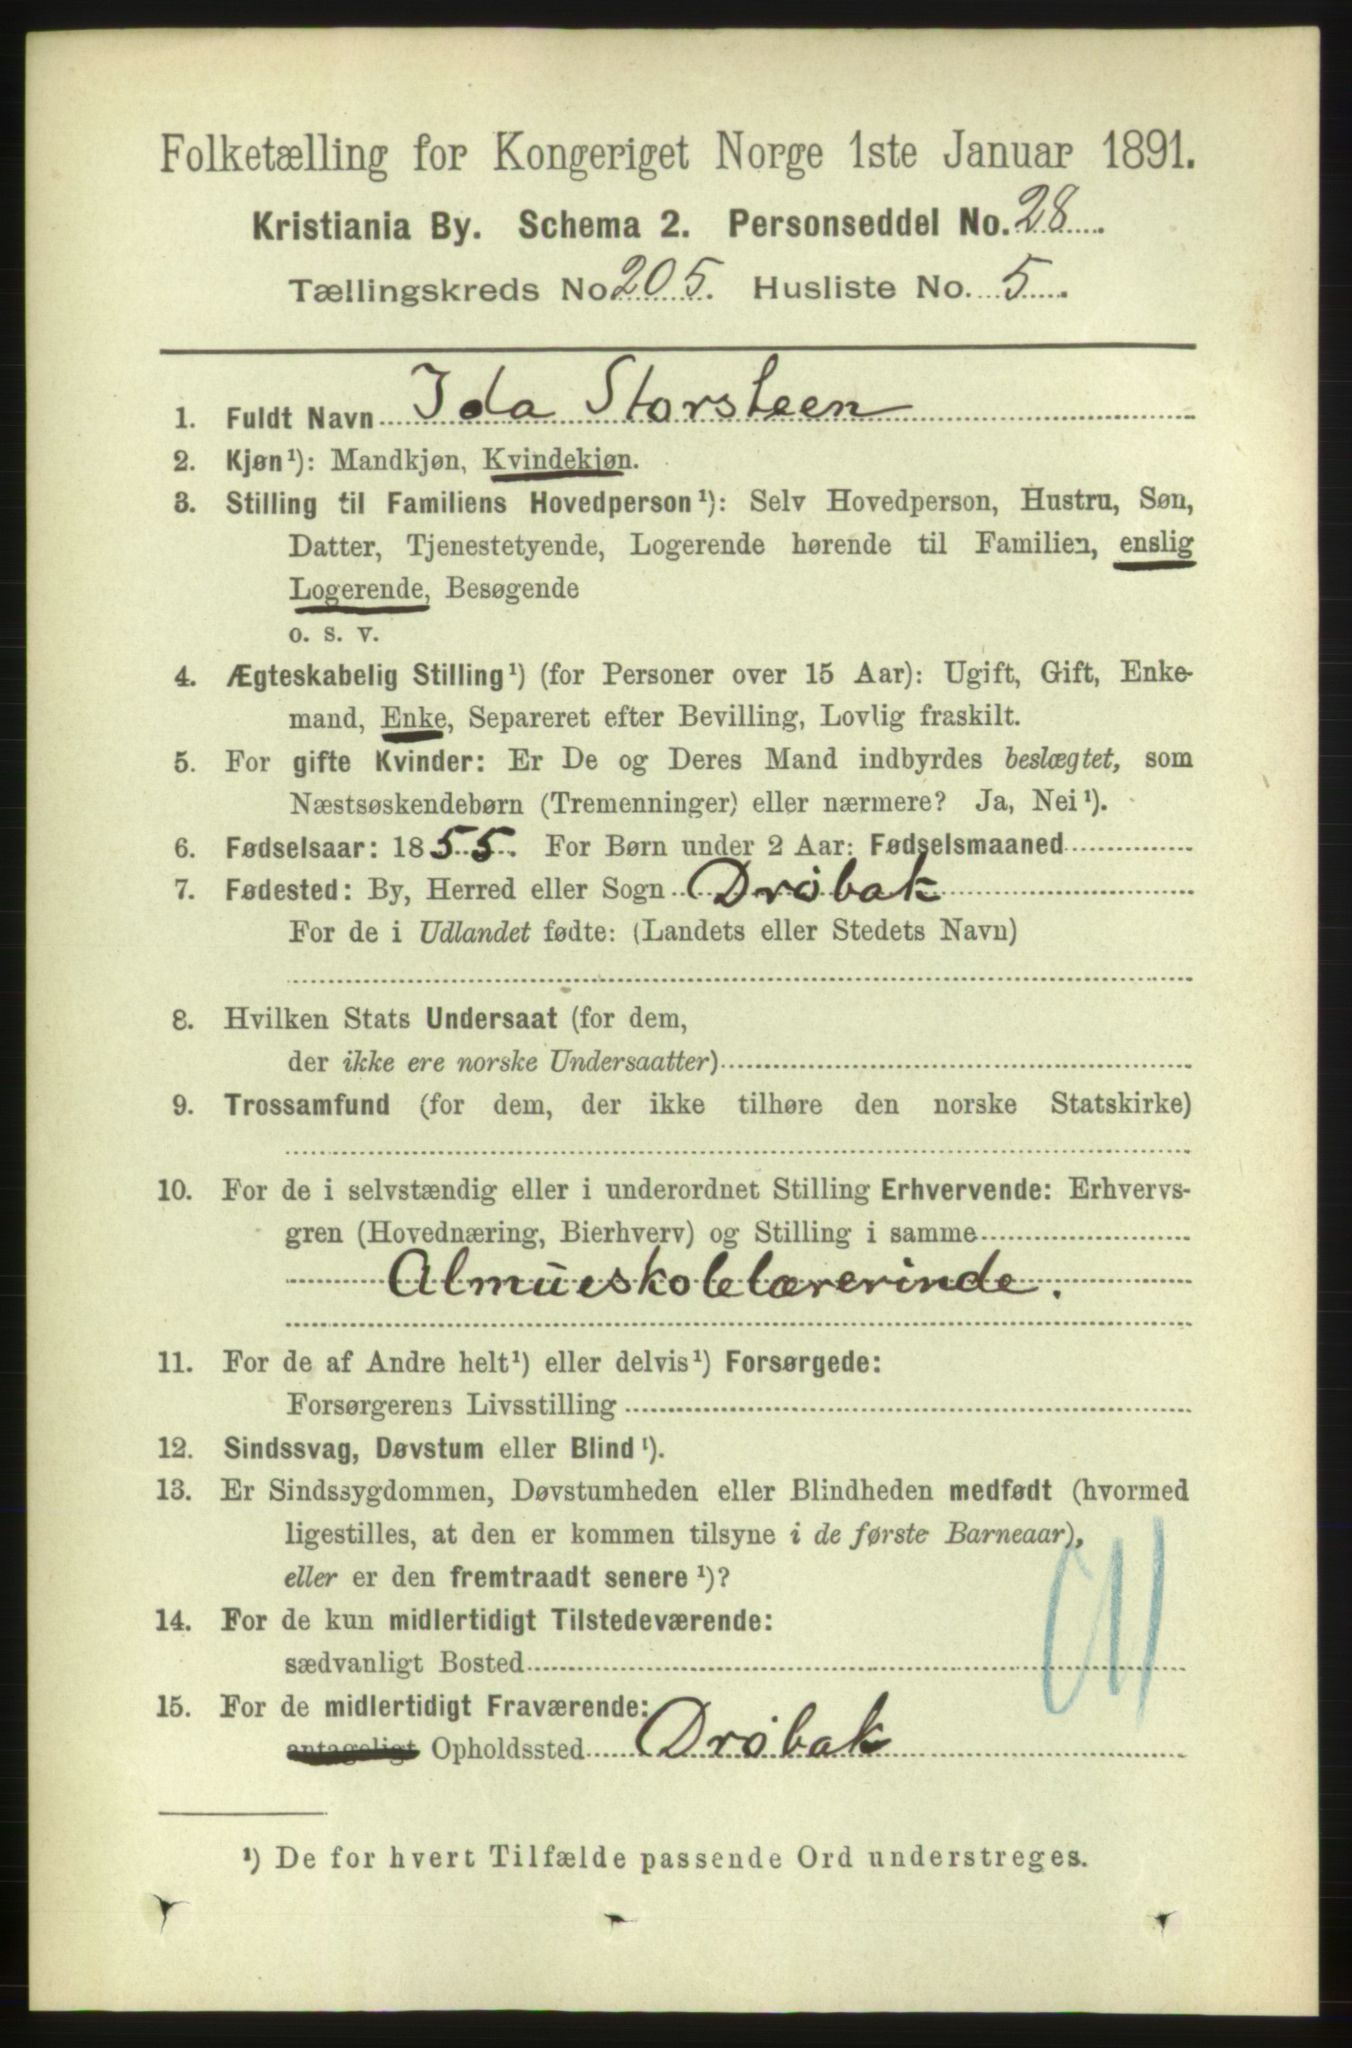 Folketælling for Kongeriget Norge 1ste Januar 1891.
Kristiania By. Schema 2. Personseddel No. 28
Tællingskreds No 205. Husliste No. 5
1. Fuldt Navn Ida Storsteen
2. Kjøn¹): Mandkjøn, Kvindekjøn.
3. Stilling til Familiens Hovedperson¹): Selv Hovedperson, Hustru, Søn,
Datter, Tjenestetyende, Logerende hørende til Familien, enslig
Logerende, Besøgende
o. s. v.
4. Ægteskabelig Stilling¹) (for Personer over 15 Aar): Ugift, Gift, Enke-
mand, Enke, Separeret efter Bevilling, Lovlig fraskilt.
5. For gifte Kvinder: Er De og Deres Mand indbyrdes beslægtet, som
Næstsøskendebørn (Tremenninger) eller nærmere? Ja, Nei¹).
6. Fødselsaar: 1855. For Børn under 2 Aar: Fødselsmaaned
7. Fødested: By, Herred eller Sogn Drøbak
For de i Udlandet fødte: (Landets eller Stedets Navn)
8. Hvilken Stats Undersaat (for dem,
der ikke ere norske Undersaatter)
9. Trossamfund (for dem, der ikke tilhøre den norske Statskirke)
10. For de i selvstændig eller i underordnet Stilling Erhvervende: Erhvervs-
gren (Hovednæring, Bierhverv) og Stilling i samme
Almueskolelærerinde.
11. For de af Andre helt¹) eller delvis¹) Forsørgede:
Forsørgerens Livsstilling
12. Sindssvag, Døvstum eller Blind¹).
13. Er Sindssygdommen, Døvstumheden eller Blindheden medfødt (hvormed
ligestilles, at den er kommen tilsyne i de første Barneaar),
eller er den fremtraadt senere¹)?
14. For de kun midlertidigt Tilstedeværende:
sædvanligt Bosted
15. For de midlertidigt Fraværende:
antageligt Opholdssted Drøbak
¹) De for hvert Tilfælde passende Ord understreges.